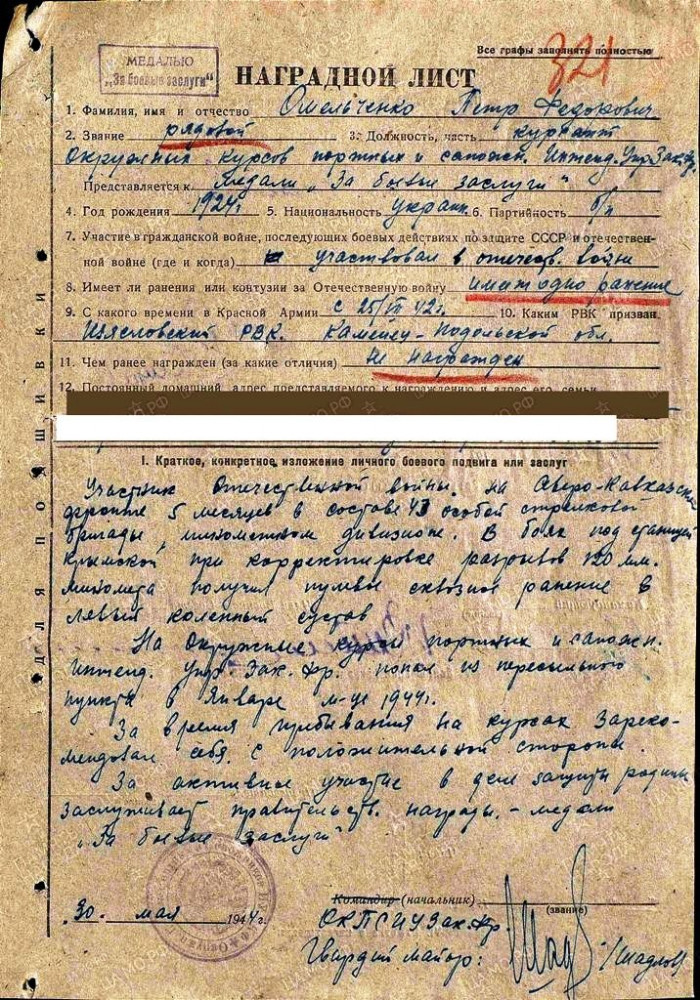 Все графы заполнять полностью
МЕДАЛЬЮ
„За боевые заслуги“
321
НАГРАДНОЙ ЛИСТ
1. Фамилия, имя и отчество Омельченко Петр Федорович
2. Звание рядовой 3. Должность, часть курсант
Окружных курсов портных и сапожн. Интенд. Упр. Зак. фр.
Представляется к Медали „За боевые заслуги“
4. Год рождения 1924г 5. Национальность украин 6. Партийность б/п
7. Участие в гражданской войне, последующих боевых действиях по защите СССР и отечествен-
ной войне (где и когда) участвовал в отечеств. войне
8. Имеет ли ранения или контузии за Отечественную войну имеет одно ранение
9. С какого времени в Красной Армии с 25/III 42г. 10. Каким РВК призван
РВК. Каменец-Подольской обл.
11. Чем ранее награжден (за какие отличия) Не награжден
12. Постоянный домашний адрес представляемого к награждению и адрес его семьи
I. Краткое, конкретное изложение личного боевого подвига или заслуг
Участник Отечественной войны. на Северо-Кавказск.
фронте 5 месяцев в составе особой стрелковой
бригады, минометном дивизионе. В боях под станицей
Крымской при корректировке разрывов 120 мм.
миномета получил пулевое сквозное ранение в
левый коленный сустав
На Окружные курсы портных и сапожн.
Интенд. Упр. Зак. фр. попал из пересыльного
пункта в Январе м-це 1944г.
За время пребывания на курсах Зареко-
мендовал себя с положительной стороны.
За активное участие в деле защиты родины
заслуживает правительств. награды. - медали
„За боевые заслуги“
Командир (начальник)
(звание)
„30. мая 1944г.
ОКПСИУЗак.фр.
Гвардии майор: /Шадлов
ДЛЯ ПОДШИВКИ